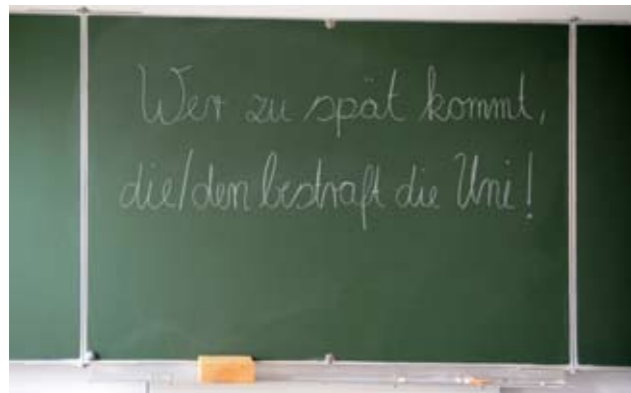 Wer zu spät kommt,
die/den bestraft die Uni!